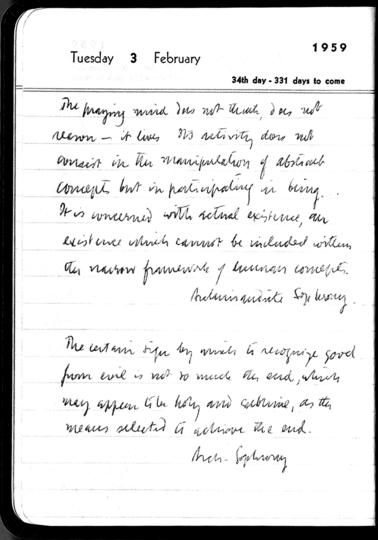 1959
Tuesday 3 February
34th day - 331 days to come
The praying mind does not think, does not
reason – it lives Its activity does not
consist in the manipulation of abstract
concepts but in participating in being.
It is concerned with actual existence, an
existence which cannot be included within
the narrow framework of human concepts.
Archimandrite Sophrony.
The certain sign by which to recognize good
from evil is not so much the end, which
may appear to be holy and sublime, as the
means selected to achieve the end.
Arch. Sophrony